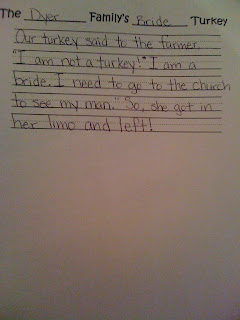 The Dyer Family's Bride Turkey
Our turkey said to the farmer,
"I am not a turkey!" I am a
bride. I need to go to the church
to see my man." So, she got in
her limo and left!